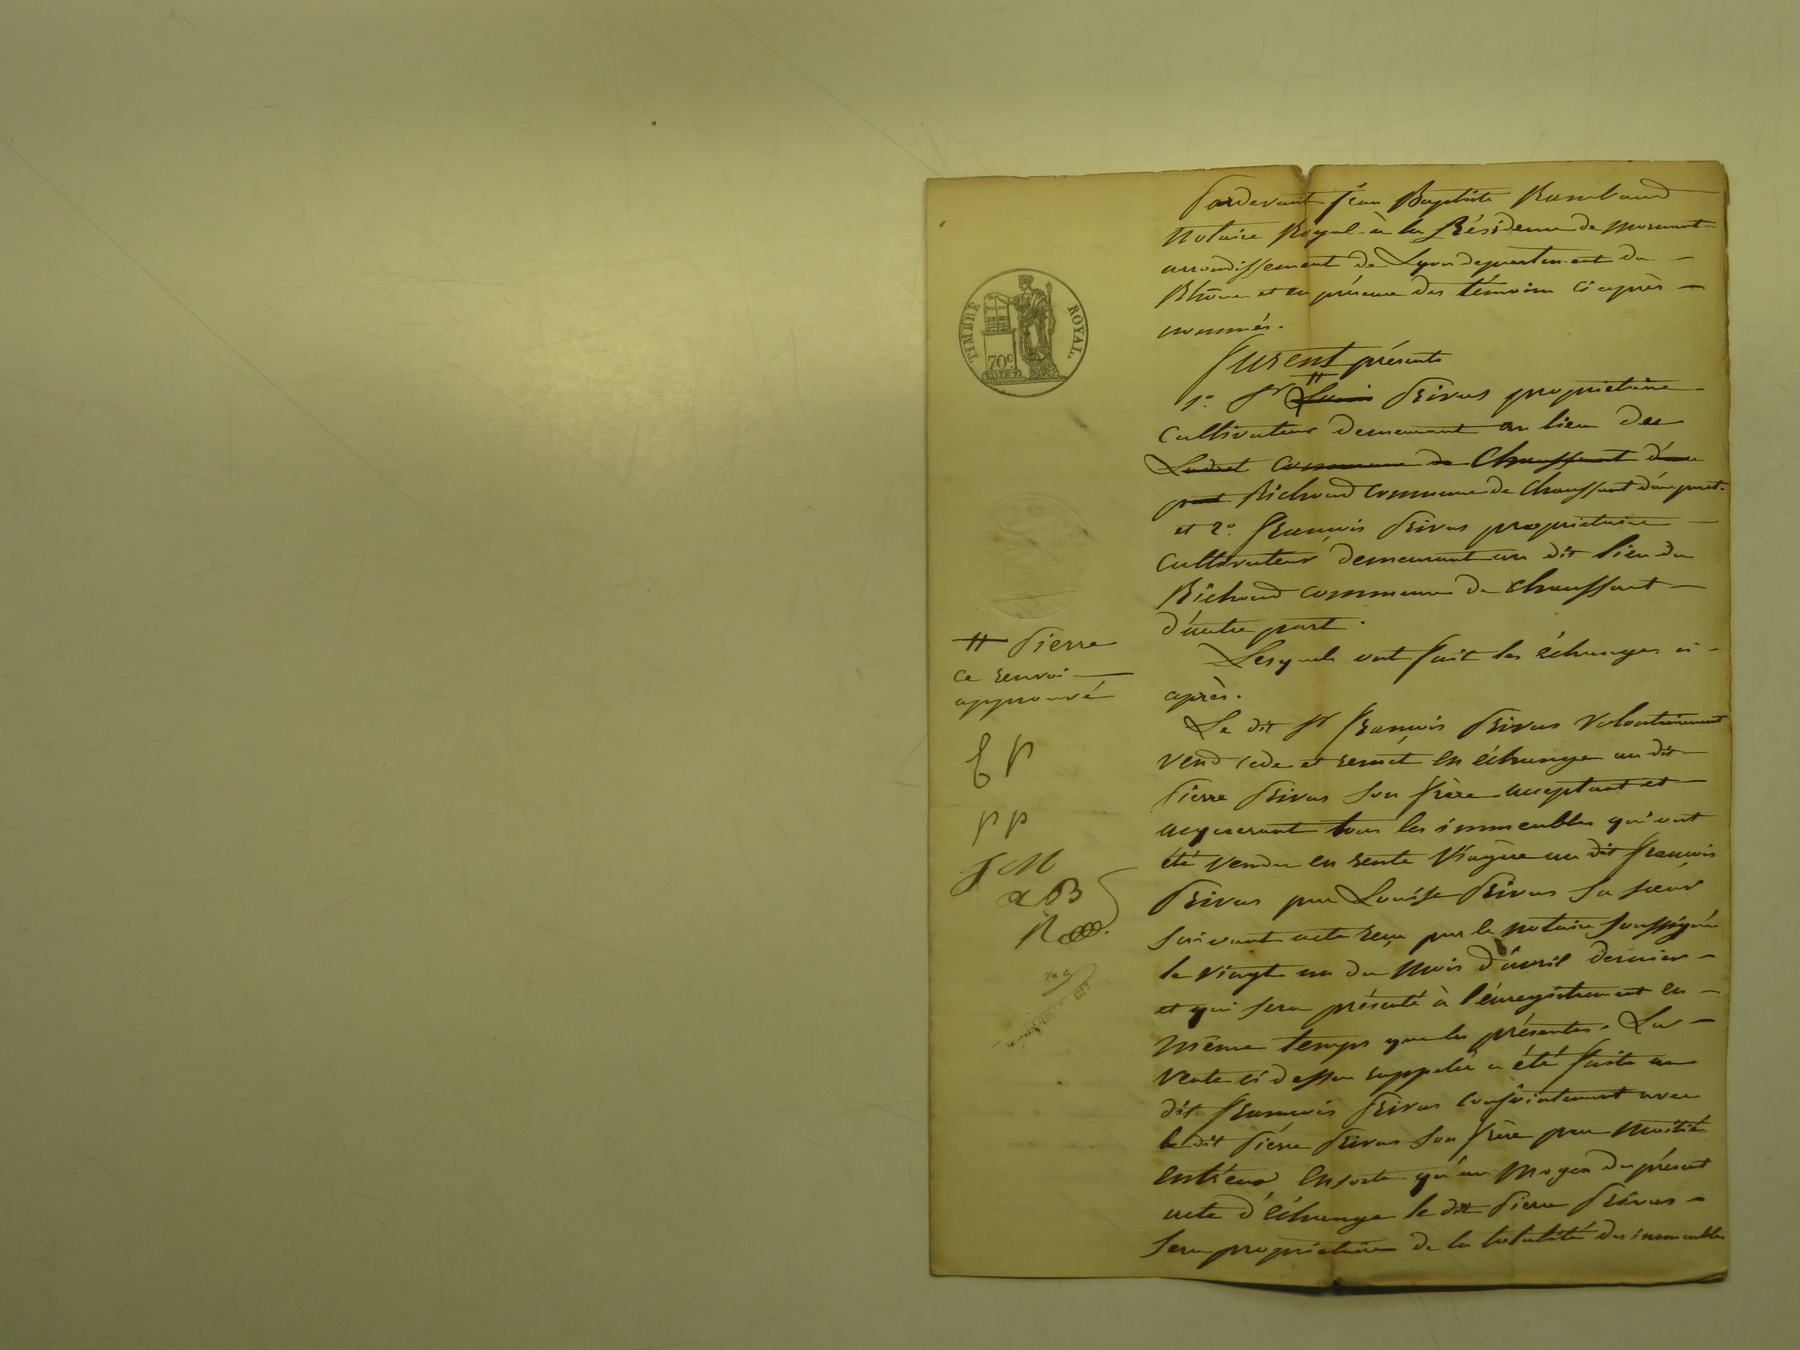 TIMBRE ROYAL.
70c.
Pardevant Jean Baptiste Rambaud
Notaire Royal à la Résidence de Mornant
arrondissement de Lyon departement du
Rhône et en présence des témoins ci après
nommés.
Furent présents
1º. Sr Louis Privas propriétaire
Cultivateur demeurant au lieu de
commune de Chaussant d'une
part Richoud Commune de Chaussant d'une part.
et 2º. François Privas propriétaire
Cultivateur demeurant au dit lieu du
Richoud commune de Chaussant
d'autre part.
Lesquels ont fait les échanges ci
après.
Le dit Sr François Privas Volontairement
vend cède et remet en échange au dit
Pierre Privas son frère acceptant et
acquerant tous les immeubles qui ont
été vendu en rente Viagère au dit François
Privas par Louise Privas sa soeur
suivant acte reçu par le notaire soussigné
le vingt un du mois d'avril dernier
et qui sera présenté à l'énregistrement en
même temps que les présentes. La
vente ci dessus rappelée a été faite au
dit François Privas conjointement avec
le dit Pierre Privas son frère par moitié
entr'eux ensorte qu'au moyen du présent
acte d'échange le dit Pierre Privas
sera propriétaire de la totalité des immeubles
H Pierre
ce renvoi
approuvé
f p
p p
J M
a B
R